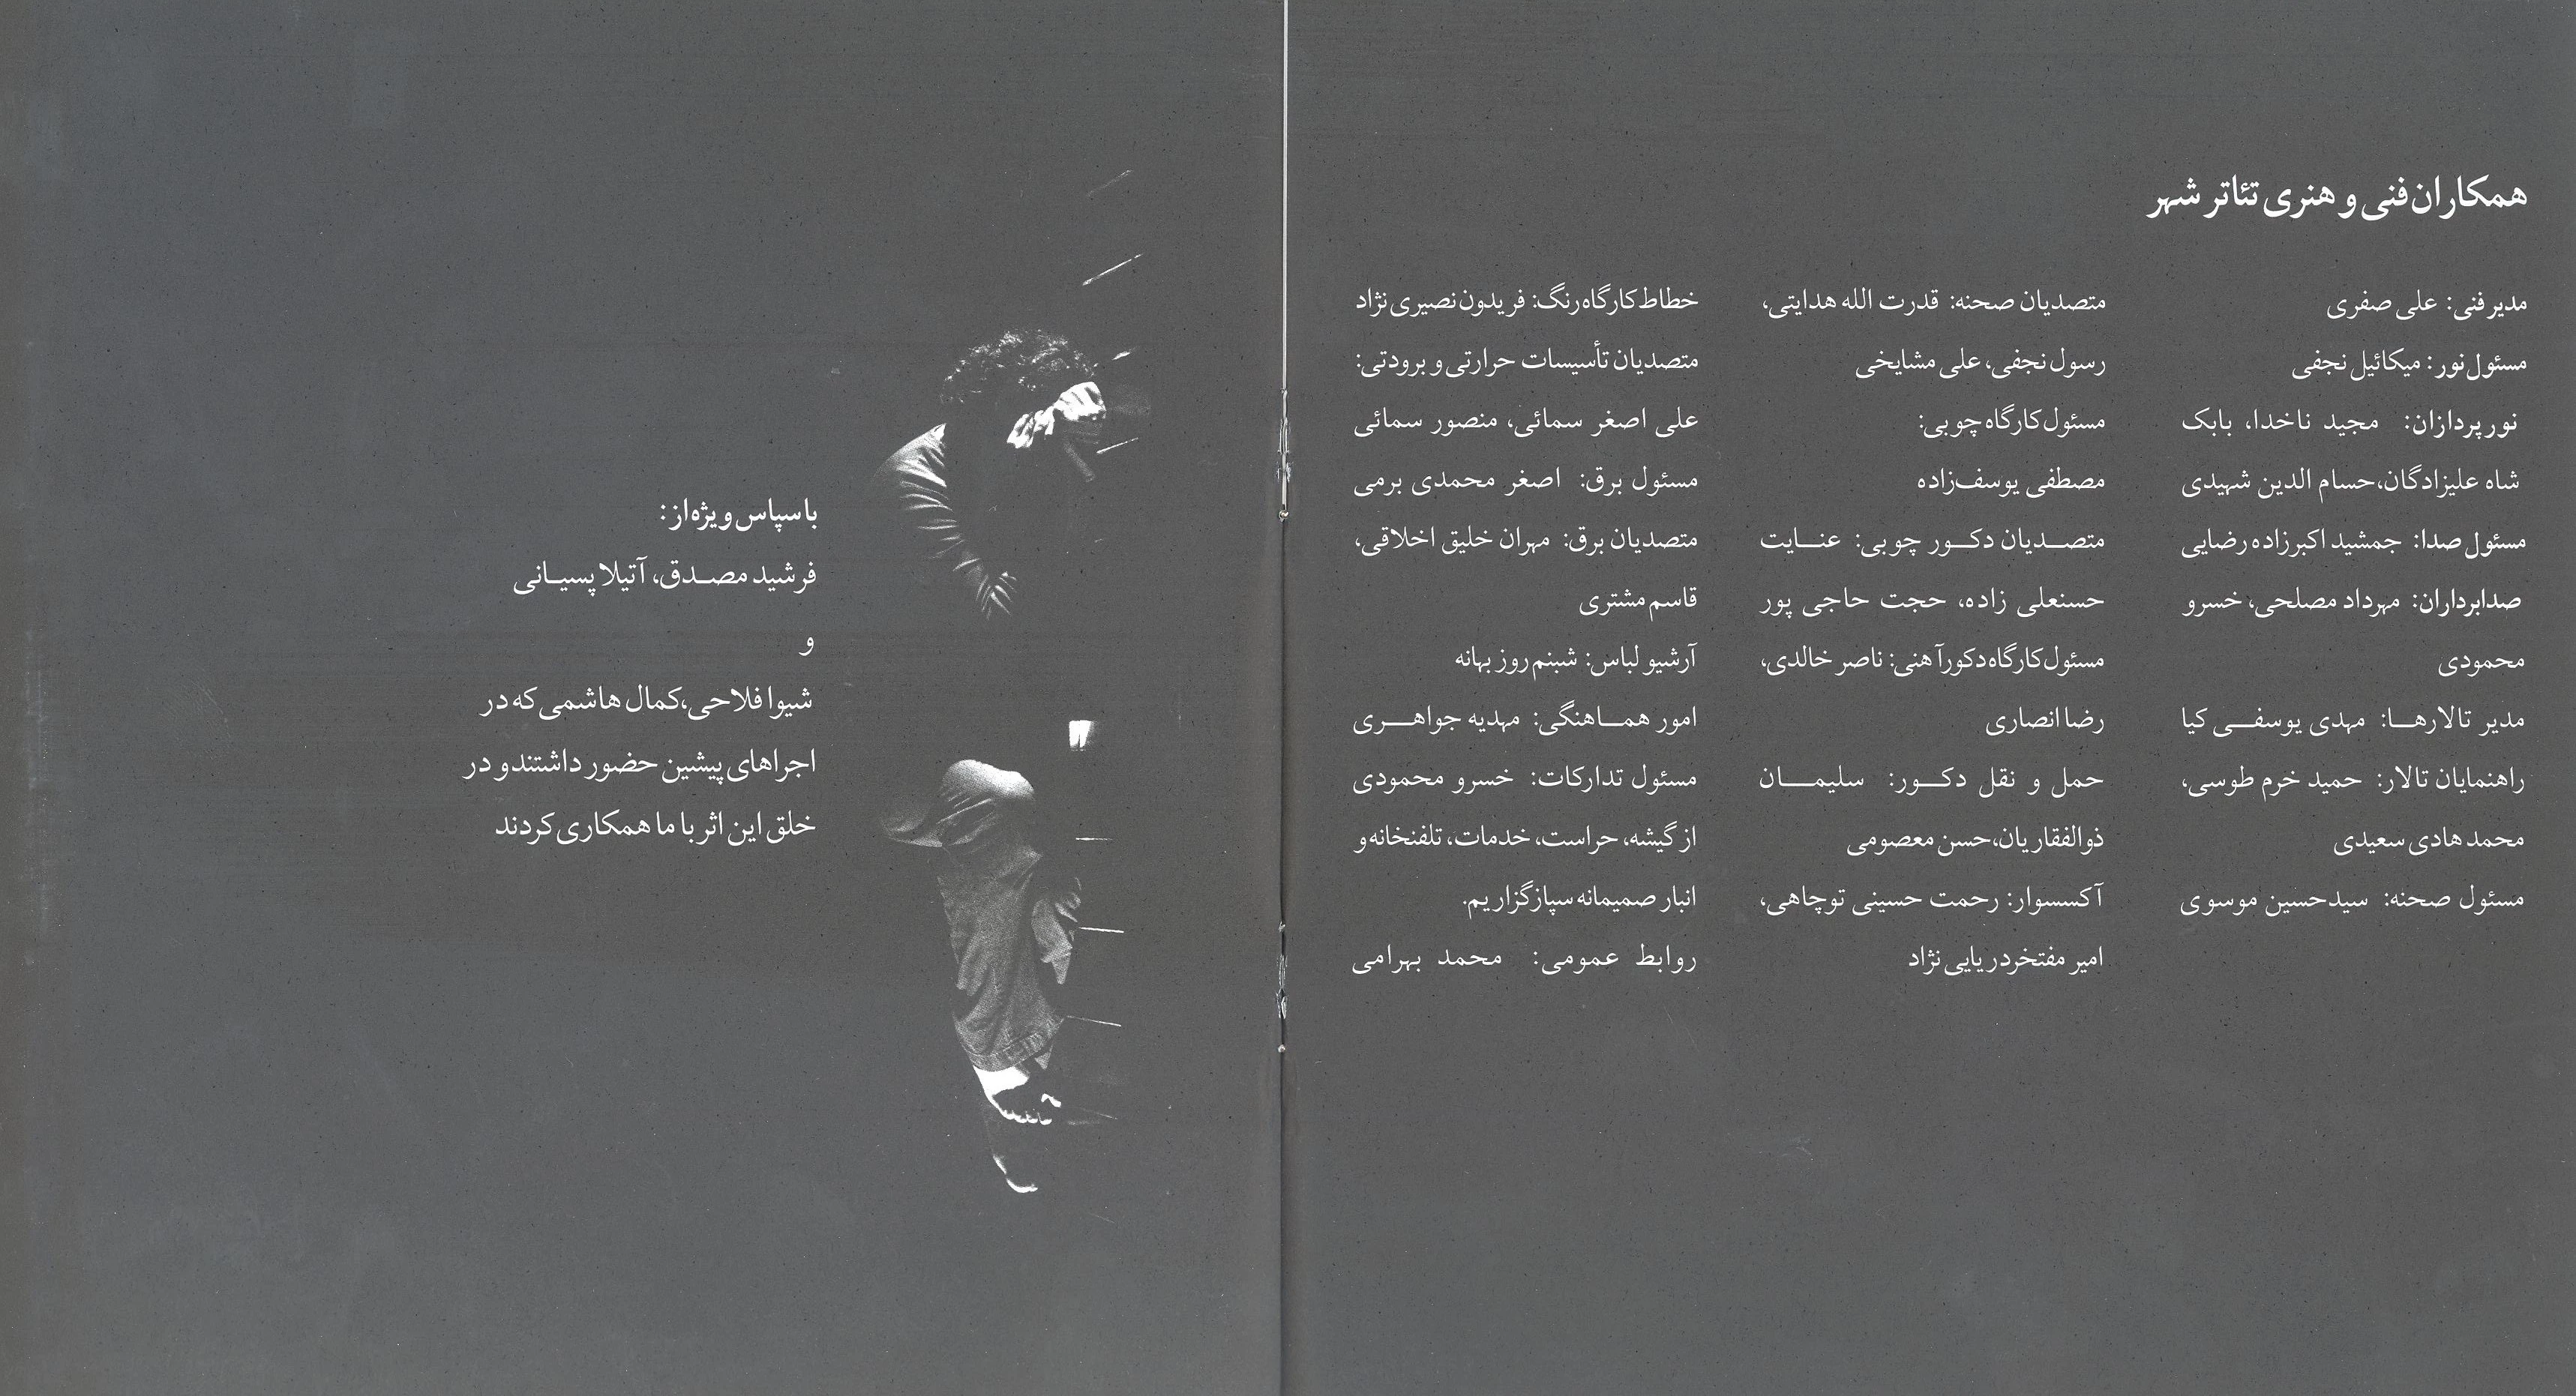 همکاران فنی و هنری تئاتر شهر
مدیر فنی: علی صفری
مسئول نور: میکائیل نجفی
نورپردازان: مجید ناخدا، بابک
شاه علیزادگان، حسام الدین شهیدی
مسئول صدا: جمشید اکبرزاده رضایی
صدابرداران: مهرداد مصلحی، خسرو
محمودی
مدیر تالارها: مهدی یوسفی کیا
راهنمایان تالار: حمید خرم طوسی،
محمد هادی سعیدی
مسئول صحنه: سیدحسین موسوی
متصدیان صحنه: قدرت الله هدایتی،
رسول نجفی، علی مشایخی
مسئول کارگاه چوبی:
مصطفی یوسف‌زاده
متصدیان دکور چوبی: عنایت
حسنعلی زاده، حجت حاجی پور
مسئول کارگاه دکور آهنی: ناصر خالدی،
رضا انصاری
حمل و نقل دکور: سلیمان
ذوالفقاریان، حسن معصومی
آکسسوار: رحمت حسینی توچاهی،
امیر مفتخر دریایی نژاد
خطاط کارگاه رنگ: فریدون نصیری نژاد
متصدیان تأسیسات حرارتی و برودتی:
علی اصغر سمائی، منصور سمائی
مسئول برق: اصغر محمدی برمی
متصدیان برق: مهران خلیق اخلاقی،
قاسم مشتری
آرشیو لباس: شبنم روز بهانه
امور هماهنگی: مهدیه جواهری
مسئول تدارکات: خسرو محمودی
از گیشه، حراست، خدمات، تلفنخانه و
انبار صمیمانه سپازگزاریم.
روابط عمومی: محمد بهرامی
با سپاس ویژه از:
فرشید مصدق، آتیلا پسیانی
و
شیوا فلاحی، کمال هاشمی که در
اجراهای پیشین حضور داشتند و در
خلق این اثر با ما همکاری کردند